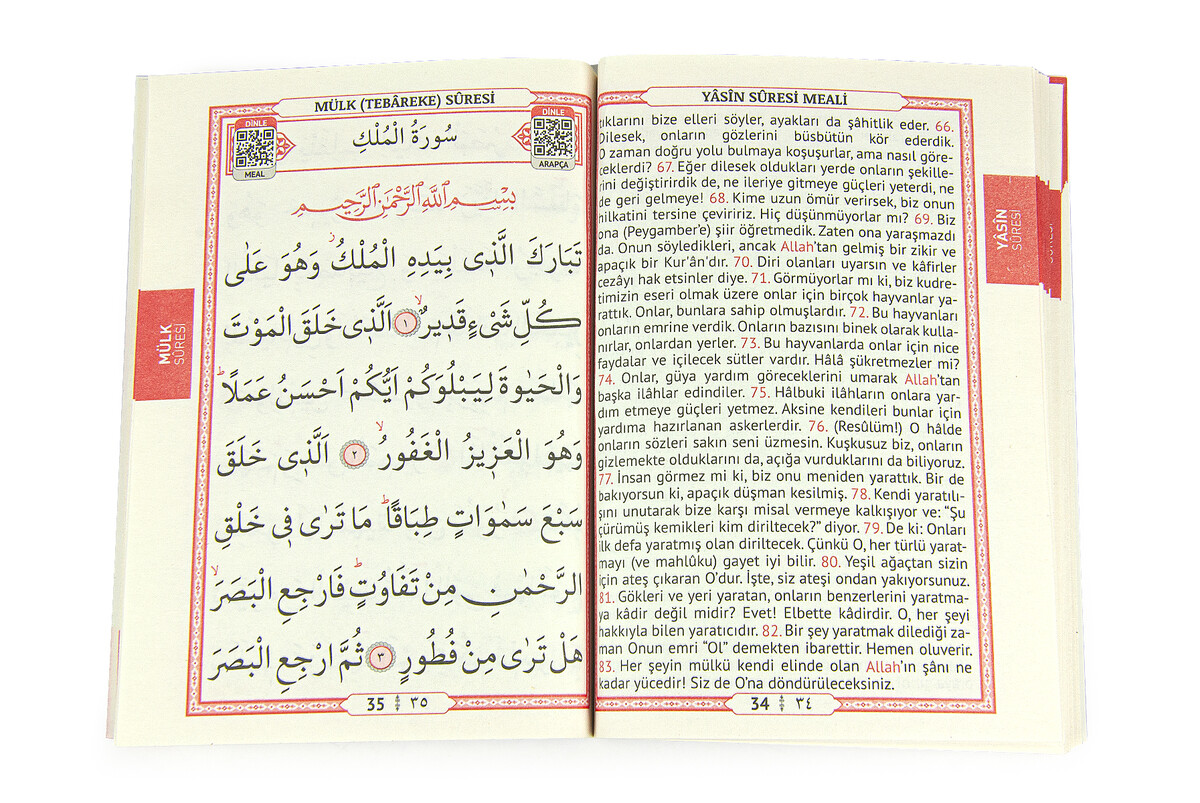 YÂSÎN SÛRESİ MEALİ
ıklarını bize elleri söyler, ayakları da şâhitlik eder. 66.
Dilesek, onların gözlerini büsbütün kör ederdik.
O zaman doğru yolu bulmaya koşuşurlar, ama nasıl göre-
ceklerdi? 67. Eğer dilesek oldukları yerde onların şekille-
rini değiştirirdik de, ne ileriye gitmeye güçleri yeterdi, ne
de geri gelmeye! 68. Kime uzun ömür verirsek, biz onun
hilkatini tersine çeviririz. Hiç düşünmüyorlar mı? 69. Biz
ona (Peygamber'e) şiir öğretmedik. Zaten ona yaraşmazdı
da. Onun söyledikleri, ancak Allah'tan gelmiş bir zikir ve
apaçık bir Kur'ân'dır. 70. Diri olanları uyarsın ve kâfirler
cezâyı hak etsinler diye. 71. Görmüyorlar mı ki, biz kudre-
timizin eseri olmak üzere onlar için birçok hayvanlar ya-
rattık. Onlar, bunlara sahip olmuşlardır. 72. Bu hayvanları
onların emrine verdik. Onların bazısını binek olarak kulla-
nırlar, onlardan yerler. 73. Bu hayvanlarda onlar için nice
faydalar ve içilecek sütler vardır. Hâlâ şükretmezler mi?
74. Onlar, güya yardım göreceklerini umarak Allah'tan
başka ilâhlar edindiler. 75. Hâlbuki ilâhların onlara yar-
dım etmeye güçleri yetmez. Aksine kendileri bunlar için
yardıma hazırlanan askerlerdir. 76. (Resûlüm!) O hâlde
onların sözleri sakın seni üzmesin. Kuşkusuz biz, onların
gizlemekte olduklarını da, açığa vurduklarını da biliyoruz.
77. İnsan görmez mi ki, biz onu meniden yarattık. Bir de
bakıyorsun ki, apaçık düşman kesilmiş. 78. Kendi yaratılı-
şını unutarak bize karşı misal vermeye kalkışıyor ve: "Şu
çürümüş kemikleri kim diriltecek?" diyor. 79. De ki: Onları
ilk defa yaratmış olan diriltecek. Çünkü O, her türlü yarat-
mayı (ve mahlûku) gayet iyi bilir. 80. Yeşil ağaçtan sizin
için ateş çıkaran O'dur. İşte, siz ateşi ondan yakıyorsunuz.
81. Gökleri ve yeri yaratan, onların benzerlerini yaratma-
ya kâdir değil midir? Evet! Elbette kâdirdir. O, her şeyi
hakkıyla bilen yaratıcıdır. 82. Bir şey yaratmak dilediği za-
man Onun emri "Ol" demekten ibarettir. Hemen oluverir.
83. Her şeyin mülkü kendi elinde olan Allah'ın şânı ne
kadar yücedir! Siz de O'na döndürüleceksiniz.
34 ٣٤
YÂSÎN
SÛRESİ
SÛRESİ
MÜLK (TEBÂREKE) SÛRESİ
DİNLE
ARAPÇA
سُورَةُ الْمُلْكِ
DİNLE
MEAL
بِسْمِ اللّٰهِ الرَّحْمٰنِ الرَّحِيمِ
تَبَارَكَ الَّذِى بِيَدِهِ الْمُلْكُ وَهُوَ عَلٰى
كُلِّ شَىْءٍ قَدِيرٌ ١ اَلَّذِى خَلَقَ الْمَوْتَ
وَالْحَيٰوةَ لِيَبْلُوَكُمْ اَيُّكُمْ اَحْسَنُ عَمَلًا
وَهُوَ الْعَزِيزُ الْغَفُورُ ٢ اَلَّذِى خَلَقَ
سَبْعَ سَمٰوَاتٍ طِبَاقًا مَا تَرٰى فِى خَلْقِ
الرَّحْمٰنِ مِنْ تَفَاوُتٍ فَارْجِعِ الْبَصَرَ
هَلْ تَرٰى مِنْ فُطُورٍ ٣ ثُمَّ ارْجِعِ الْبَصَرَ
35 ٣٥
MÜLK
SÛRESİ